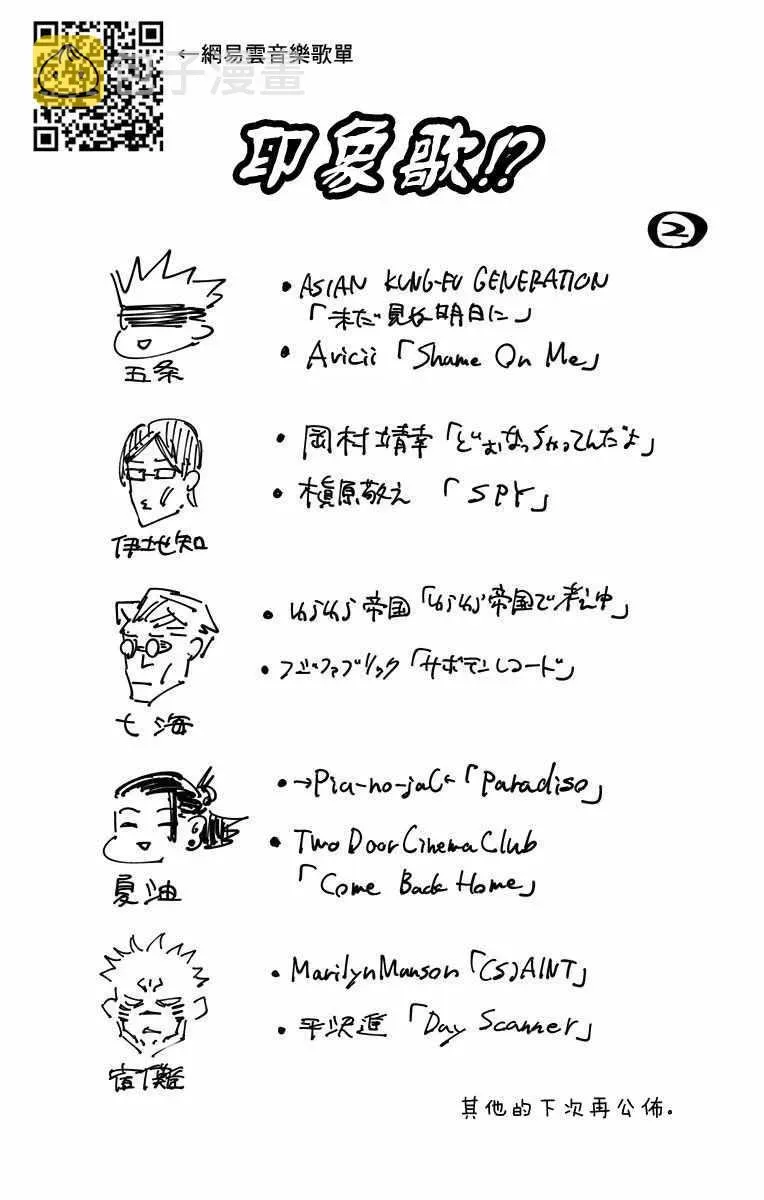 ←網易雲音樂歌單
包子漫畫
印象歌!?
2
•ASIAN KUNG-FU GENERATION
「未だ見ぬ明日に」
•Avicii「Shame On Me」
五条
•岡村靖幸「どぉなっちゃってんだよ」
•槇原敬之「SPY」
伊地知
•ゆらゆら帝国「ゆらゆら帝国で考え中」
•フジファブリック「サボテンレコード」
七海
•→Pia-no-jaC←「Paradiso」
•Two Door Cinema Club
「Come Back Home」
夏油
•Marilyn Manson「(S)AINT」
•平沢進「Day Scanner」
宿儺
其他的下次再公佈.